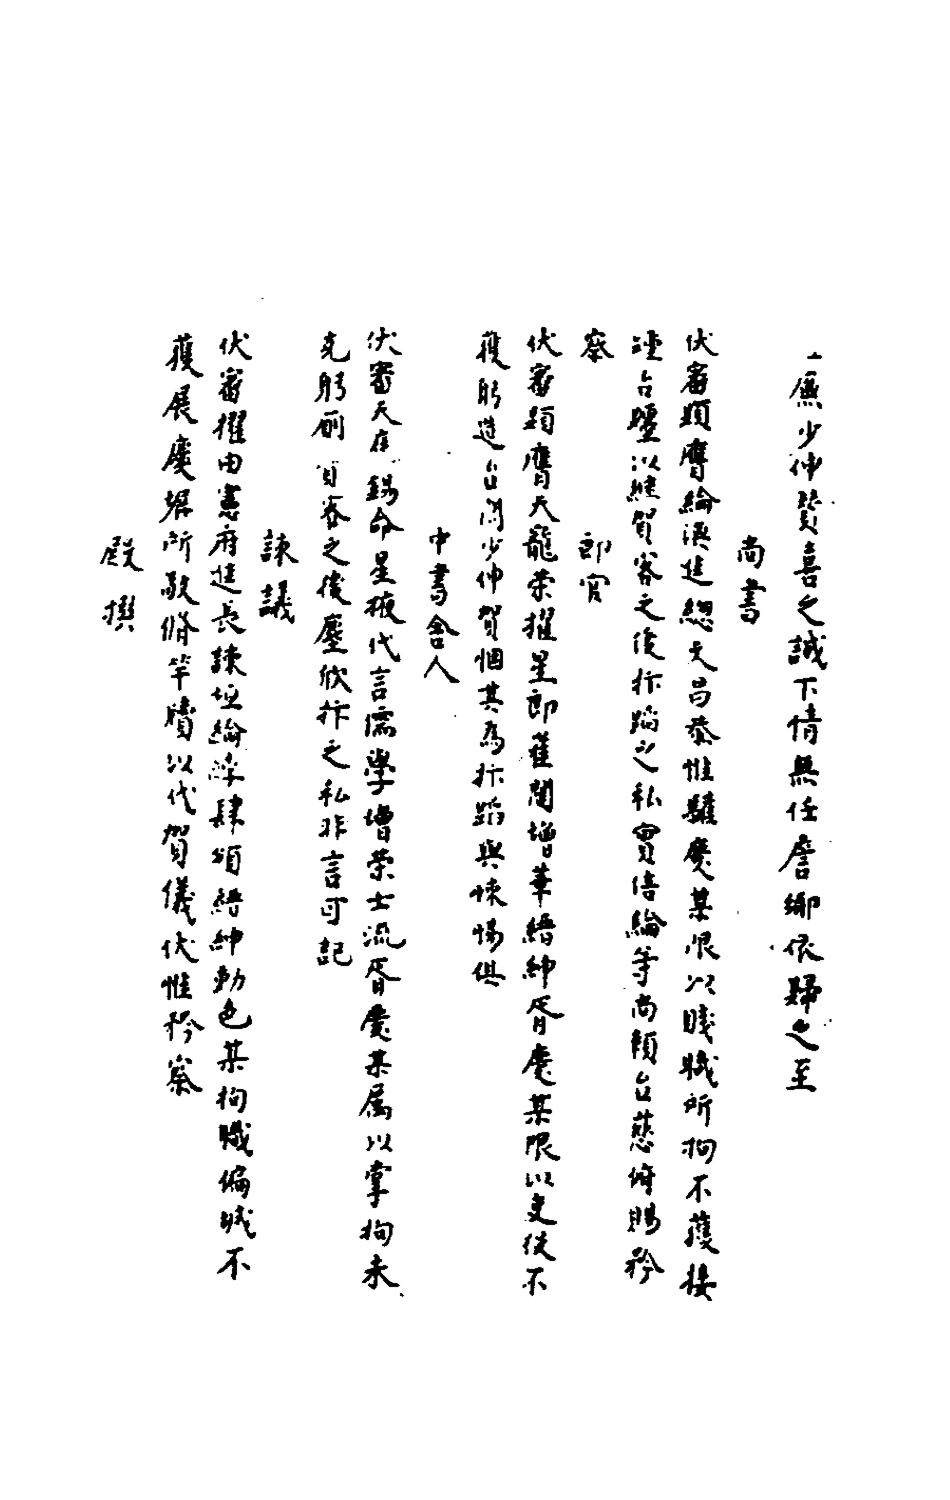 廡少伸贊喜之誠下情無任詹鄉依歸之至
尚書
伏審顯膺綸渙進總文昌恭惟驩慶某限以賤職所拘不獲接
迹台躔以繼賀客之後抃蹈之私實倍倫等尚賴台慈俯賜矜
察
郎官
伏審顯膺天寵榮擢星郎蓮閣增華縉紳胥慶某限以吏役不
獲躬造台閎少伸賀悃其為抃蹈與悚惕俱
中書舍人
伏審天在錫命星掖代言儒學增榮士流胥慶某屬以掌拘未
克躬廁賀客之後塵欣抃之私非言可記
諫議
伏審擢由憲府進長諫垣綸綍肆頒縉紳動色某拘職偏城不
獲展慶墀所敢脩竿牘以代賀儀伏惟矜察
殿撰